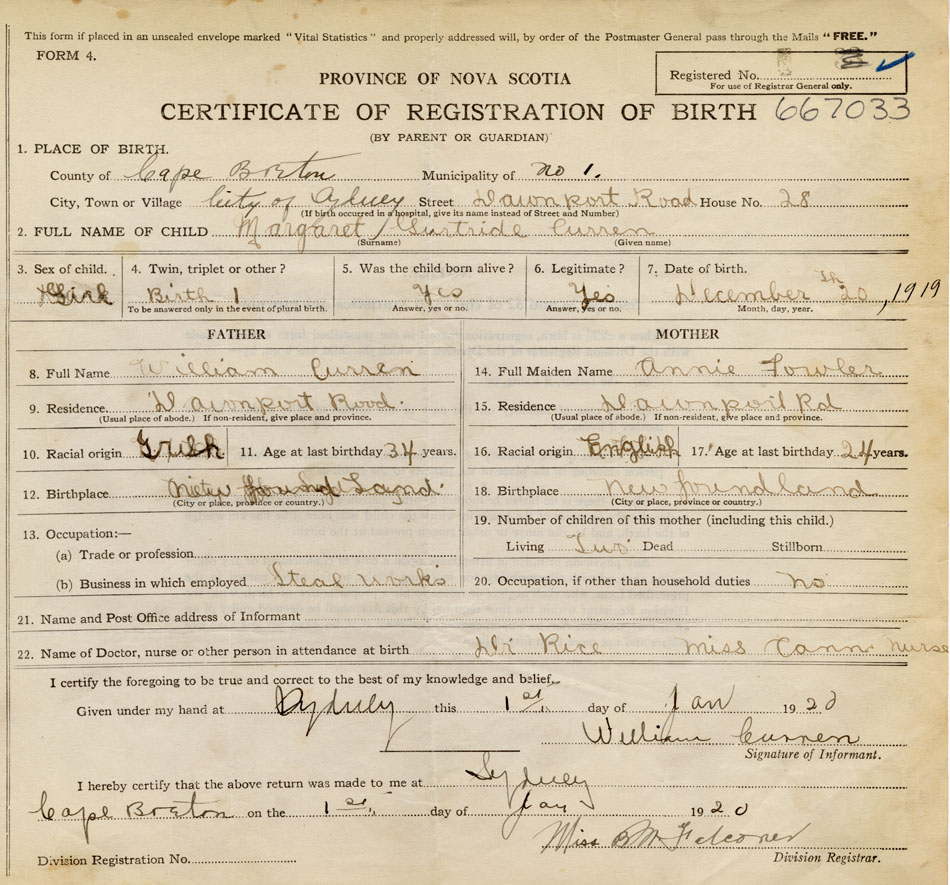 This form if placed in an unsealed envelope marked "Vital Statistics" and properly addressed will, by order of the Postmaster General pass through the Mails "FREE."
FORM 4.
PROVINCE OF NOVA SCOTIA
Registered No.
For use of Registrar General only.
CERTIFICATE OF REGISTRATION OF BIRTH 667033
(BY PARENT OR GUARDIAN)
1. PLACE OF BIRTH.
County of Cape Breton Municipality of no 1.
City, Town or Village City of Sydney Street Dawnport Road House No. 28
(If birth occurred in a hospital, give its name instead of Street and Number)
2. FULL NAME OF CHILD Margaret Gurtride Curren
(Surname) (Given name)
3. Sex of child. 4. Twin, triplet or other? 5. Was the child born alive? 6. Legitimate? 7. Date of birth.
Girl Birth 1 Yes Yes December 20th, 1919
To be answered only in the event of plural birth. Answer, yes or no. Answer, yes or no. Month, day, year.
FATHER MOTHER
8. Full Name William Curren 14. Full Maiden Name Annie Fowler
9. Residence. Dawnport Rood. 15. Residence Dawnport Rd
(Usual place of abode.) If non-resident, give place and province. (Usual place of abode.) If non-resident, give place and province.
10. Racial origin 11. Age at last birthday 34 years. 16. Racial origin English 17. Age at last birthday 24 years.
12. Birthplace Land 18. Birthplace Newfoundland
(City or place, province or country.) (City or place, province or country.)
13. Occupation:— 19. Number of children of this mother (including this child.)
(a) Trade or profession Living Two Dead Stillborn
(b) Business in which employed Steal works 20. Occupation, if other than household duties No
21. Name and Post Office address of Informant
22. Name of Doctor, nurse or other person in attendance at birth Dr Rice Miss Cann nurse
I certify the foregoing to be true and correct to the best of my knowledge and belief.
Given under my hand at Sydney this 1st. day of Jan 1920
William Curren
Signature of Informant.
I hereby certify that the above return was made to me at Sydney
Cape Breton on the 1st. day of Jan 1920
Miss B M Falconer
Division Registration No. Division Registrar.